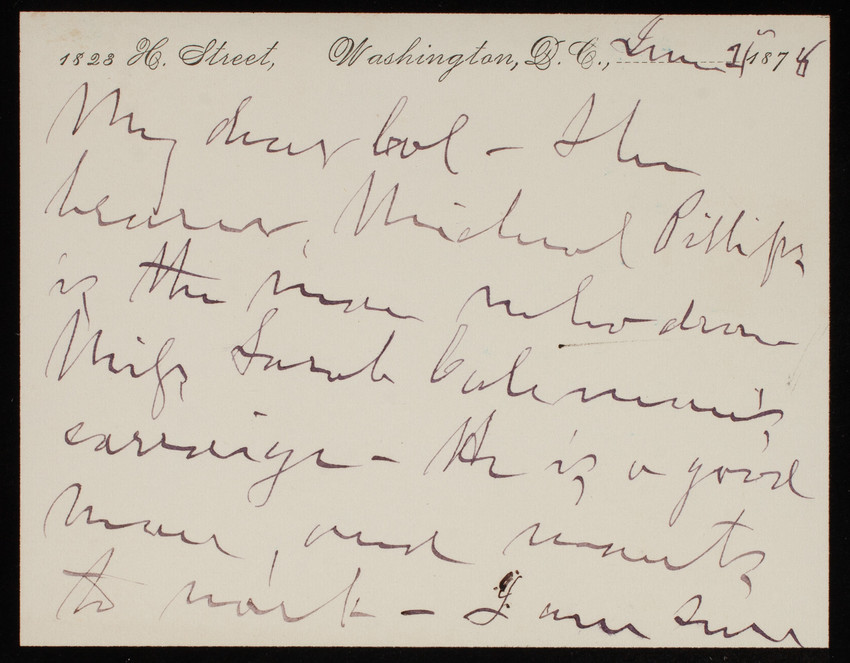 1823 H. Street, Washington, D.C., June 1st 1878
My dear Col - The
bearer, Michael Pillips
is the man who drove
Miss Sarah Coleman's
carraige - He is a good
man, and wants
to work - I am sure